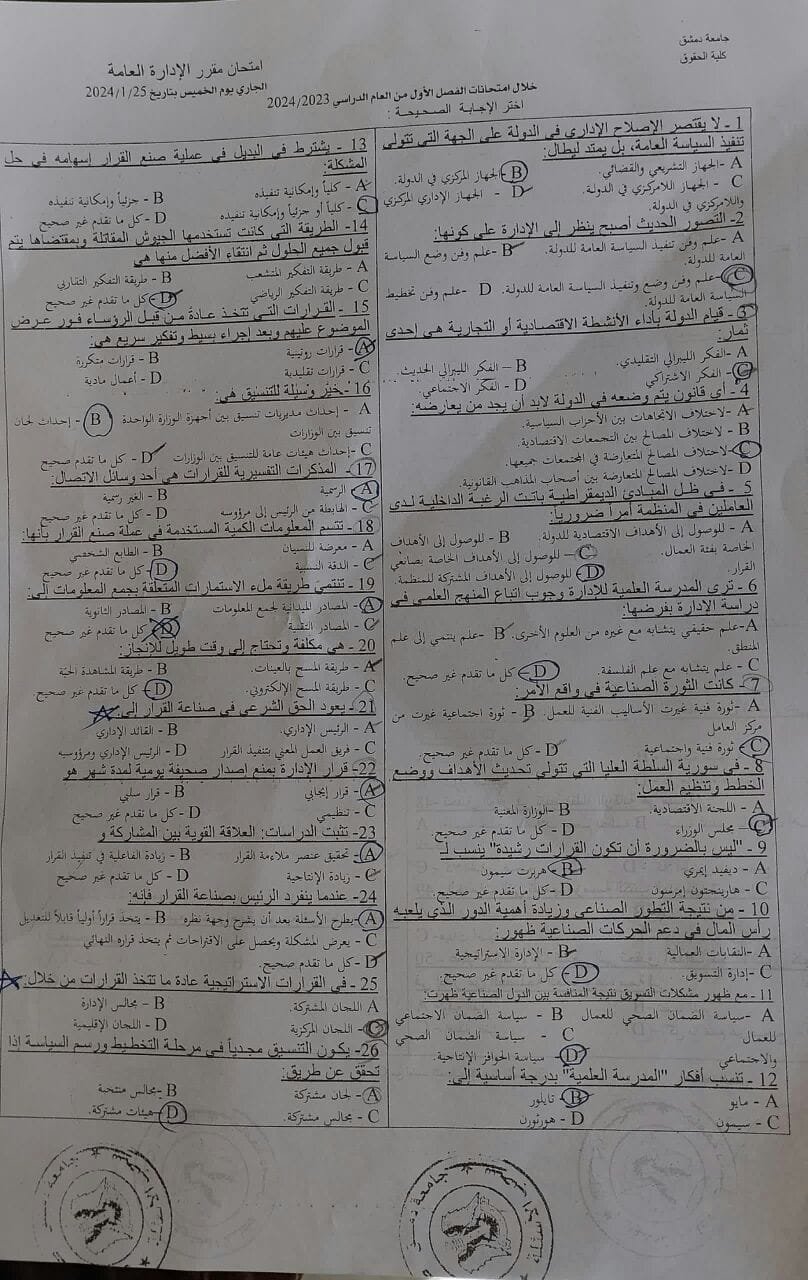 جامعة دمشق
كلية الحقوق
امتحان مقرر الإدارة العامة
الجاري يوم الخميس بتاريخ 2024/1/25
خلال امتحانات الفصل الأول من العام الدراسي 2024/2023
اختر الإجابة الصحيحة :
1 - لا يقتصر الإصلاح الإداري في الدولة على الجهة التي تتولى
تنفيذ السياسة العامة، بل يمتد ليطال:
A -الجهاز التشريعي والقضائي. B -الجهاز المركزي في الدولة.
C - الجهاز اللامركزي في الدولة. D - الجهاز الإداري المركزي
واللامركزي في الدولة.
2- التصور الحديث أصبح ينظر إلى الإدارة على كونها:
A -علم وفن تنفيذ السياسة العامة للدولة. B -علم وفن وضع السياسة
العامة للدولة.
C -علم وفن وضع وتنفيذ السياسة العامة للدولة. D -علم وفن تخطيط
السياسة العامة للدولة.
3 - قيام الدولة بأداء الأنشطة الاقتصادية أو التجارية هي إحدى
ثمار:
A -الفكر الليبرالي التقليدي. B – الفكر الليبرالي الحديث.
C - الفكر الاشتراكي D - الفكر الاجتماعي.
4 - أي قانون يتم وضعه في الدولة لابد أن يجد من يعارضه:
A -لاختلاف الاتجاهات بين الأحزاب السياسية.
B - لاختلاف المصالح بين التجمعات الاقتصادية.
C -لاختلاف المصالح المتعارضة في المجتمعات جميعها.
D -لاختلاف المصالح المتعارضة بين أصحاب المذاهب القانونية.
5 - في ظل المبادئ الديمقراطية باتت الرغبة الداخلية لدى
العاملين في المنظمة أمراً ضرورياً:
A - للوصول إلى الأهداف الاقتصادية للدولة. B - للوصول إلى الأهداف
الخاصة بفئة العمال. C – للوصول إلى الأهداف الخاصة بصانعي
القرار. D - للوصول إلى الأهداف المشتركة للمنظمة.
6 - ترى المدرسة العلمية للإدارة وجوب اتباع المنهج العلمي في
دراسة الإدارة بفرضها:
A-علم حقيقي يتشابه مع غيره من العلوم الأخرى. B- علم ينتمي إلى علم
المنطق.
C - علم يتشابه مع علم الفلسفة. D - كل ما تقدم غير صحيح.
7 - كانت الثورة الصناعية في واقع الأمر:
A -ثورة فنية غيرت الأساليب الفنية للعمل. B - ثورة اجتماعية غيرت من
مركز العامل
C - ثورة فنية واجتماعية D- كل ما تقدم غير صحيح.
8 - في سورية السلطة العليا التي تتولى تحديث الأهداف ووضع
الخطط وتنظيم العمل:
A - اللجنة الاقتصادية. B -الوزارة المعنية
C - مجلس الوزراء D - كل ما تقدم غير صحيح.
9 - "ليس بالضرورة أن تكون القرارات رشيدة" ينسب لـ
A - ديفيد إيمري B -هربرت سيمون
C - هارينجتون إمرسون D- كل ما تقدم غير صحيح.
10 - من نتيجة التطور الصناعي وزيادة أهمية الدور الذي يلعبه
رأس المال في دعم الحركات الصناعية ظهور:
A -النقابات العمالية B - الإدارة الاستراتيجية
C -إدارة التسويق. D - كل ما تقدم غير صحيح.
11 - مع ظهور مشكلات التسويق نتيجة المنافسة بين الدول الصناعية ظهرت:
A -سياسة الضمان الصحي للعمال B - سياسة الضمان الاجتماعي
للعمال C - سياسة الضمان الصحي
والاجتماعي D- سياسة الحوافز الإنتاجية.
12 - تنسب أفكار "المدرسة العلمية" بدرجة أساسية إلى:
A - مايو B - تايلور
C - سيمون D - هورثورن
13 - يشترط في البديل في عملية صنع القرار إسهامه في حل
المشكلة:
A - كلياً وإمكانية تنفيذه B - جزئياً وإمكانية تنفيذه
C - كلياً أو جزئياً وإمكانية تنفيذه D - كل ما تقدم غير صحيح
14- الطريقة التي كانت تستخدمها الجيوش المقاتلة وبمقتضاها يتم
قبول جميع الحلول ثم انتقاء الأفضل منها هي
A - طريقة التفكير المتشعب B - طريقة التفكير التقاربي
C - طريقة التفكير الرياضي D- كل ما تقدم غير صحيح
15 - القرارات التي تتخذ عادة من قبل الرؤساء فور عرض
الموضوع عليهم وبعد إجراء بسيط وتفكير سريع هي:
A - قرارات روتينية B - قرارات متكررة
C - قرارات تقليدية D - أعمال مادية
16 -خير وسيلة للتنسيق هي:
A - إحداث مديريات تنسيق بين أجهزة الوزارة الواحدة B - إحداث لجان
تنسيق بين الوزارات
C -إحداث هيئات عامة للتنسيق بين الوزارات D - كل ما تقدم غير صحيح
17 - المذكرات التفسيرية للقرارات هي أحد وسائل الاتصال:
A - الرسمية B - الغير رسمية
C - الهابطة من الرئيس إلى مرؤوسه D - كل ما تقدم غير صحيح
18 - تتسم المعلومات الكمية المستخدمة في عملة صنع القرار بأنها:
A - معرضة للنسيان B - الطابع الشخصي
C - الدقة النسبية D - كل ما تقدم غير صحيح
19 - تنتمي طريقة ملء الاستمارات المتعلقة بجمع المعلومات إلى:
A - المصادر الميدانية لجمع المعلومات B - المصادر الثانوية
C - المصادر التقنية D - كل ما تقدم غير صحيح
20 - هي مكلفة وتحتاج إلى وقت طويل للإنجاز:
A - طريقة المسح بالعينات. B - طريقة المشاهدة الحية
C - طريقة المسح الإلكتروني. D - كل ما تقدم غير صحيح
21 - يعود الحق الشرعي في صناعة القرار إلى:
A - الرئيس الإداري. B - القائد الإداري
C - فريق العمل المعني بتنفيذ القرار D - الرئيس الإداري ومرؤوسيه
22- قرار الإدارة بمنع إصدار صحيفة يومية لمدة شهر هو
A - قرار إيجابي B - قرار سلبي
C - تنظيمي D - كل ما تقدم غير صحيح
23- تثبت الدراسات: العلاقة القوية بين المشاركة و
A - تحقيق عنصر ملاءمة القرار B - زيادة الفاعلية في تنفيذ القرار
C - زيادة الإنتاجية D - كل ما تقدم غير صحيح
24- عندما ينفرد الرئيس بصناعة القرار فإنه:
A -يطرح الأسئلة بعد أن يشرح وجهة نظره B - يتخذ قراراً أولياً قابلاً للتعديل
C - يعرض المشكلة ويحصل على الاقتراحات ثم يتخذ قراره النهائي
D- كل ما تقدم صحيح.
25 - في القرارات الاستراتيجية عادة ما تتخذ القرارات من خلال:
A اللجان المشتركة. B - مجالس الإدارة
C - اللجان المركزية D - اللجان الإقليمية
26- يكون التنسيق مجدياً في مرحلة التخطيط ورسم السياسة إذا
تحقق عن طريق:
A - لجان مشتركة B -مجالس منتخبة
C - مجالس مشتركة. D - هيئات مشتركة.